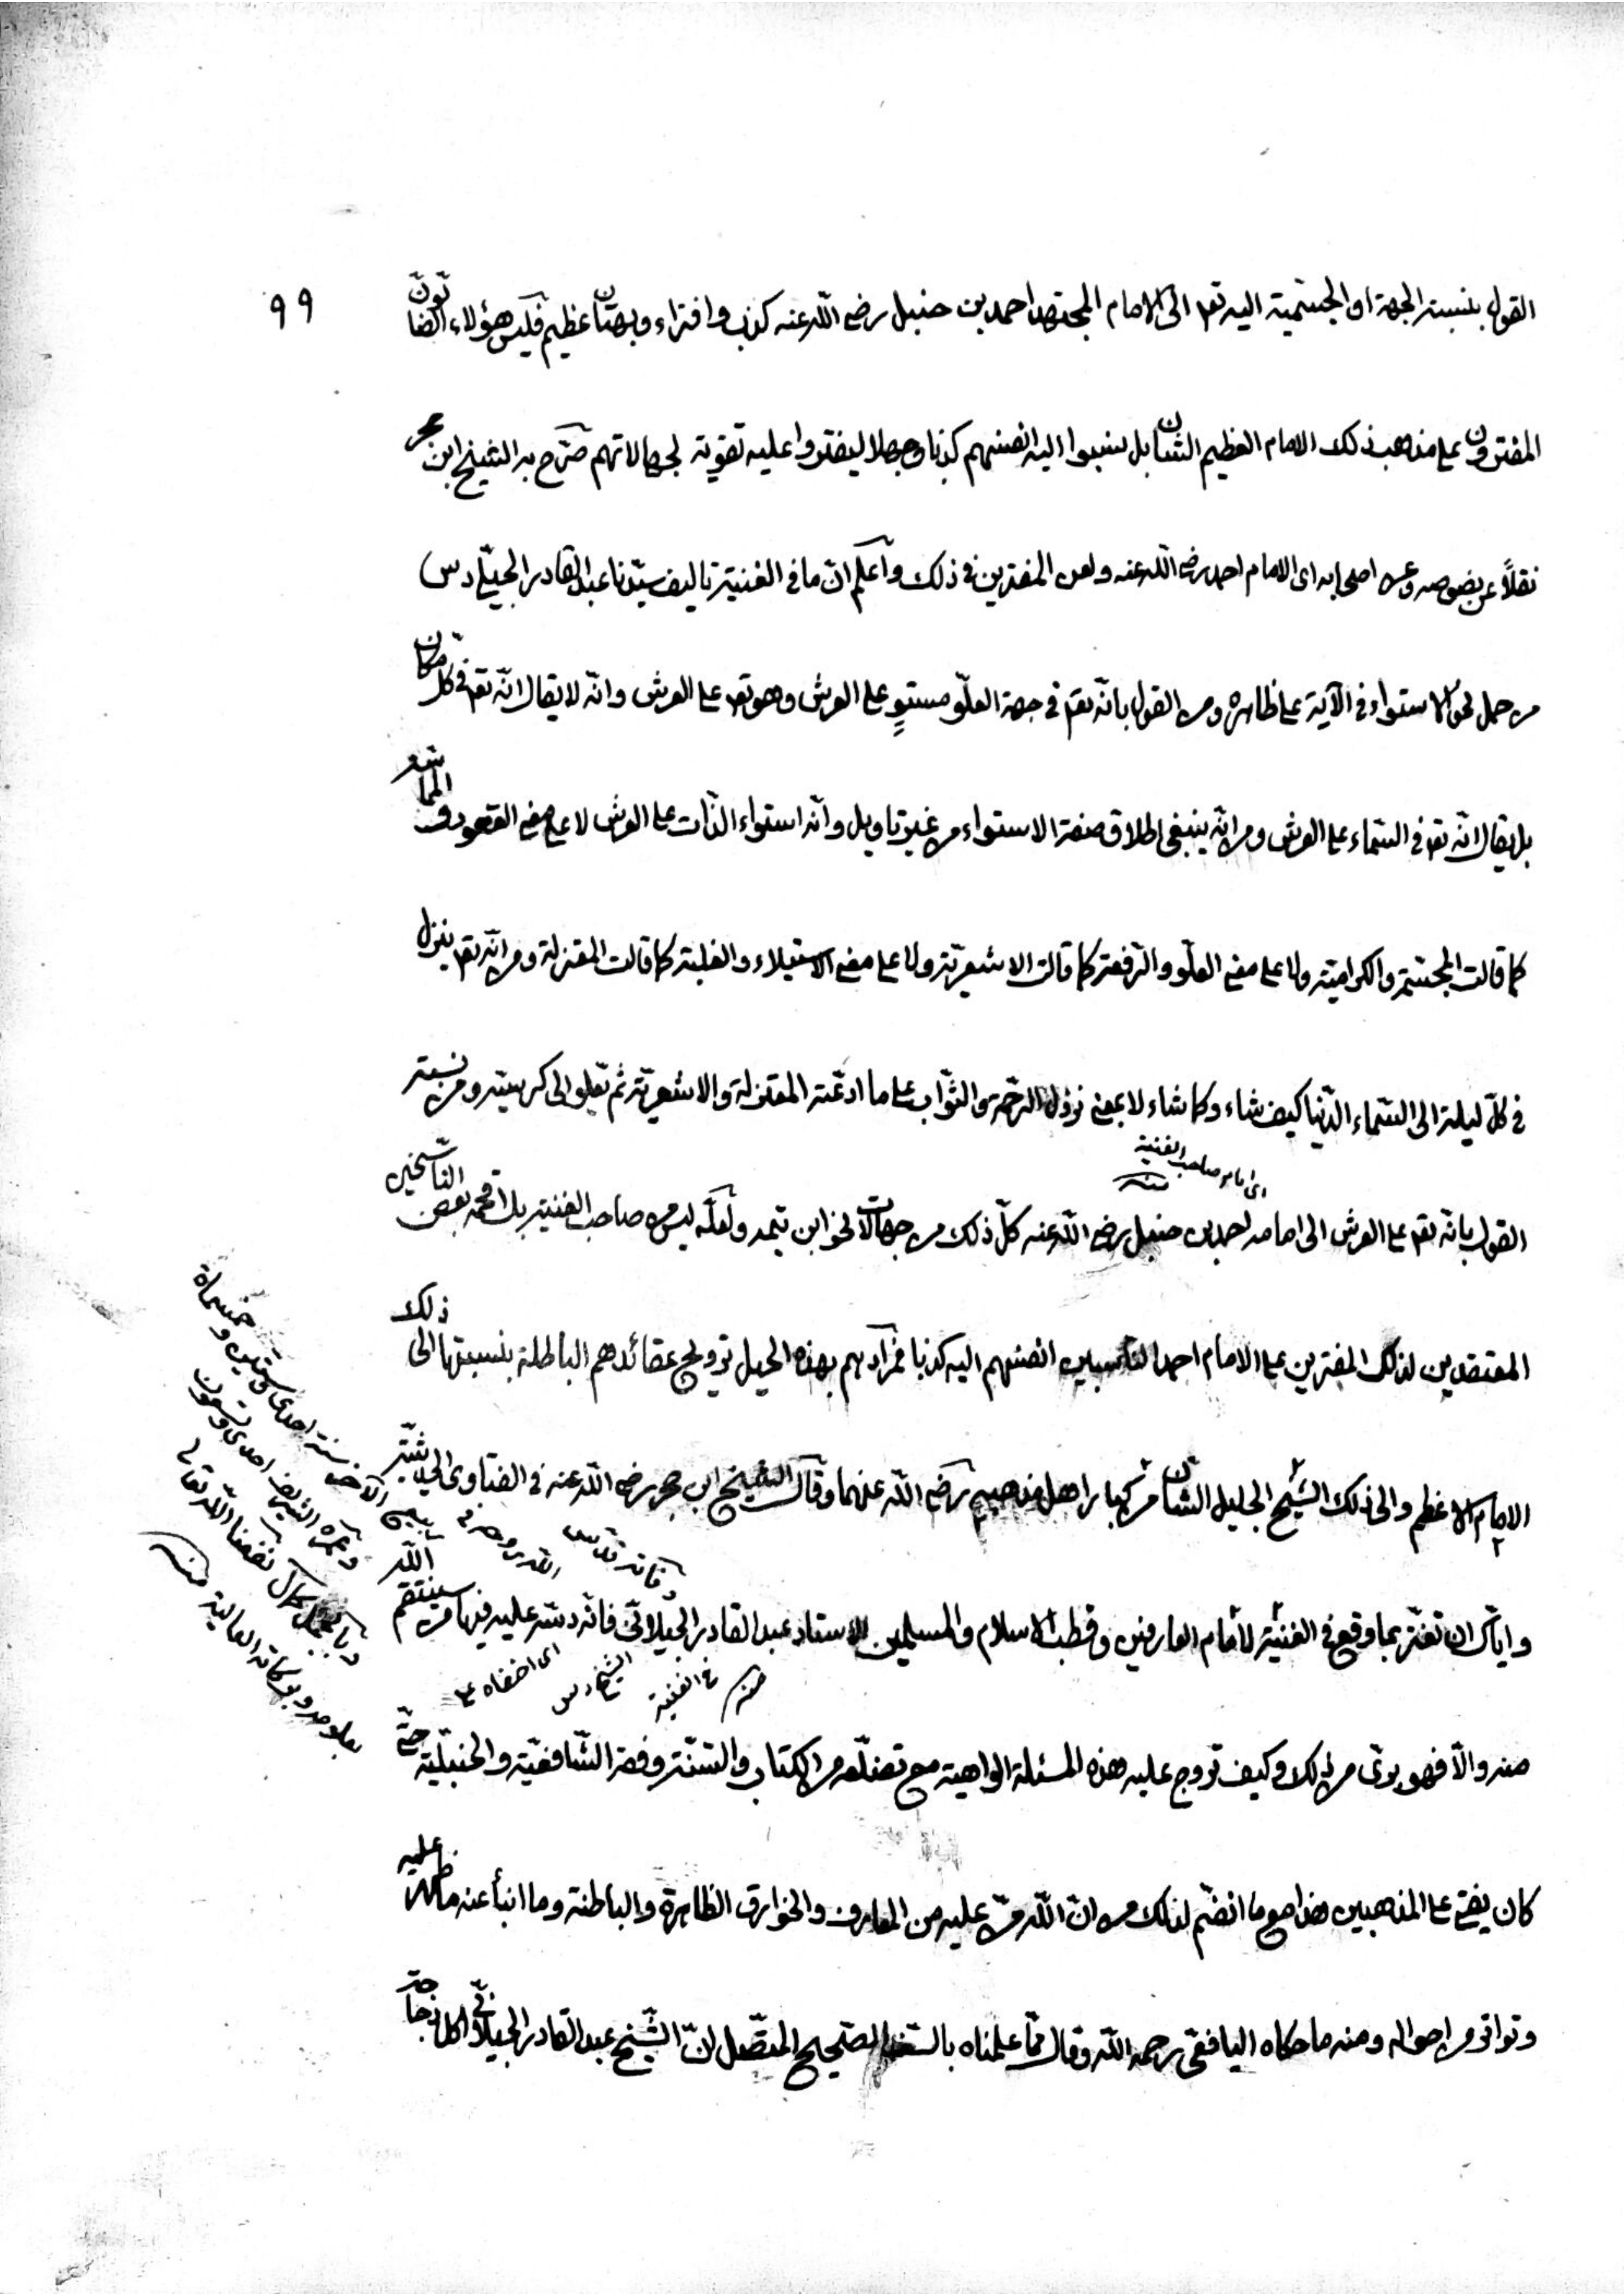 ٩٩
القول بنسبة الجهة او الجسمية اليه تعم الى الامام المجتهد احمد بن حنبل رضي الله عنه كذب وافتراء وبهتان عظيم فليس هؤلاء الضالون
المفترون على مذهب ذلك الامام العظيم الشان بل نسبوا اليه انفسهم كذبا وجهلا ليفتروا عليه تقوية لجهالاتهم صرّح به الشيخ ابن حجر
نقلاً عن نصوصه وعن اصحابه اى الامام احمد رضي الله عنه ولعن المفترين في ذلك واعلم انّ ما في الغنية تاليف سيّدنا عبد القادر الجيلى قدس
من حمل نحو الاستواء في الآية على ظاهره ومن القول بانّه تعم في جهة العلوّ مستوٍ على العرش وهو تعم على العرش وانّه لا يقال انّه تعم في كل مكان
بل يقال انّه تعم في السّماء على العرش ومن انّه ينبغى اطلاق صفة الاستواء من غير تاويل وانّه استواء الذّات على العرش لا على معنى القعود والمماسّة
كما قالت المجسّمة والكراميّة ولا على معنى العلوّ والرّفعة كما قالت الاشعريّة ولا على معنى الاستيلاء والغلبة كما قالت المعتزلة ومن انّه تعم ينزل
في كلّ ليلة الى السّماء الدّنيا كيف شاء وكما شاء لا بمعنى نزول الرّحمة والثّواب على ما ادعّته المعتزلة والاشعريّة ثم تعلو الى كرسيّه ومن نسبة
اى امام صاحب الغنية
منه
القول بانّه تعم على العرش الى امامه احمد بن حنبل رضي الله عنه كلّ ذلك من جهالات نحو ابن تيميه ولعلّه ليس من صاحب الغنية بل اقحمه بعض النّاسخين
المعتقدين لذلك المفترين على الامام احمد النّاسبين انفسهم اليه كذبا فمرادهم بهذه الحيل ترويج عقائدهم الباطلة بنسبتها الى ذلك
الامام الاعظم والى ذلك الشّيخ الجليل الشان من كبار اهل مذهبه رضي الله عنهما وقال الشيخ ابن حجر رضي الله عنه في الفتاوى الحديثيّة
وايّاك ان تغترّ بما وقع في الغنية لامام العارفين وقطب الاسلام والمسلمين الاستاد عبد القادر الجيلانىّ فانّه دسّه عليه فيها من سينتقم الله
منه والّا فهو برىّ من ذلك وكيف تروج عليه هذه المسئلة الواهية مع تضلّعه من الكتاب والسّنّة وفقه الشّافعيّة والحنبليّة حتّى
كان يفتى على المذهبين هذا مع ما انضّم لذلك من انّ الله منّ عليه من المعارف والخوارق الظاهرة والباطنة وما انبأ عنه ما ظهر عليه
وتواتر من احواله ومنه ما حكاه اليافعى رحمه الله وقال ممّا علمناه بالسّند الصّحيح المتصّل انّ الشّيخ عبد القادر الجيلانىّ اكل دجاجة
اى اخفاه على
الشيخ قدس
في الغنية
منه
وفاته قدس
الله روحه في
ربيع الآخر سنة احدى وستين وخمسمأة
وعمره الشريف احدى وتسعون
نفعنا الله تعالى
بعلومه وبركاته العالية منه